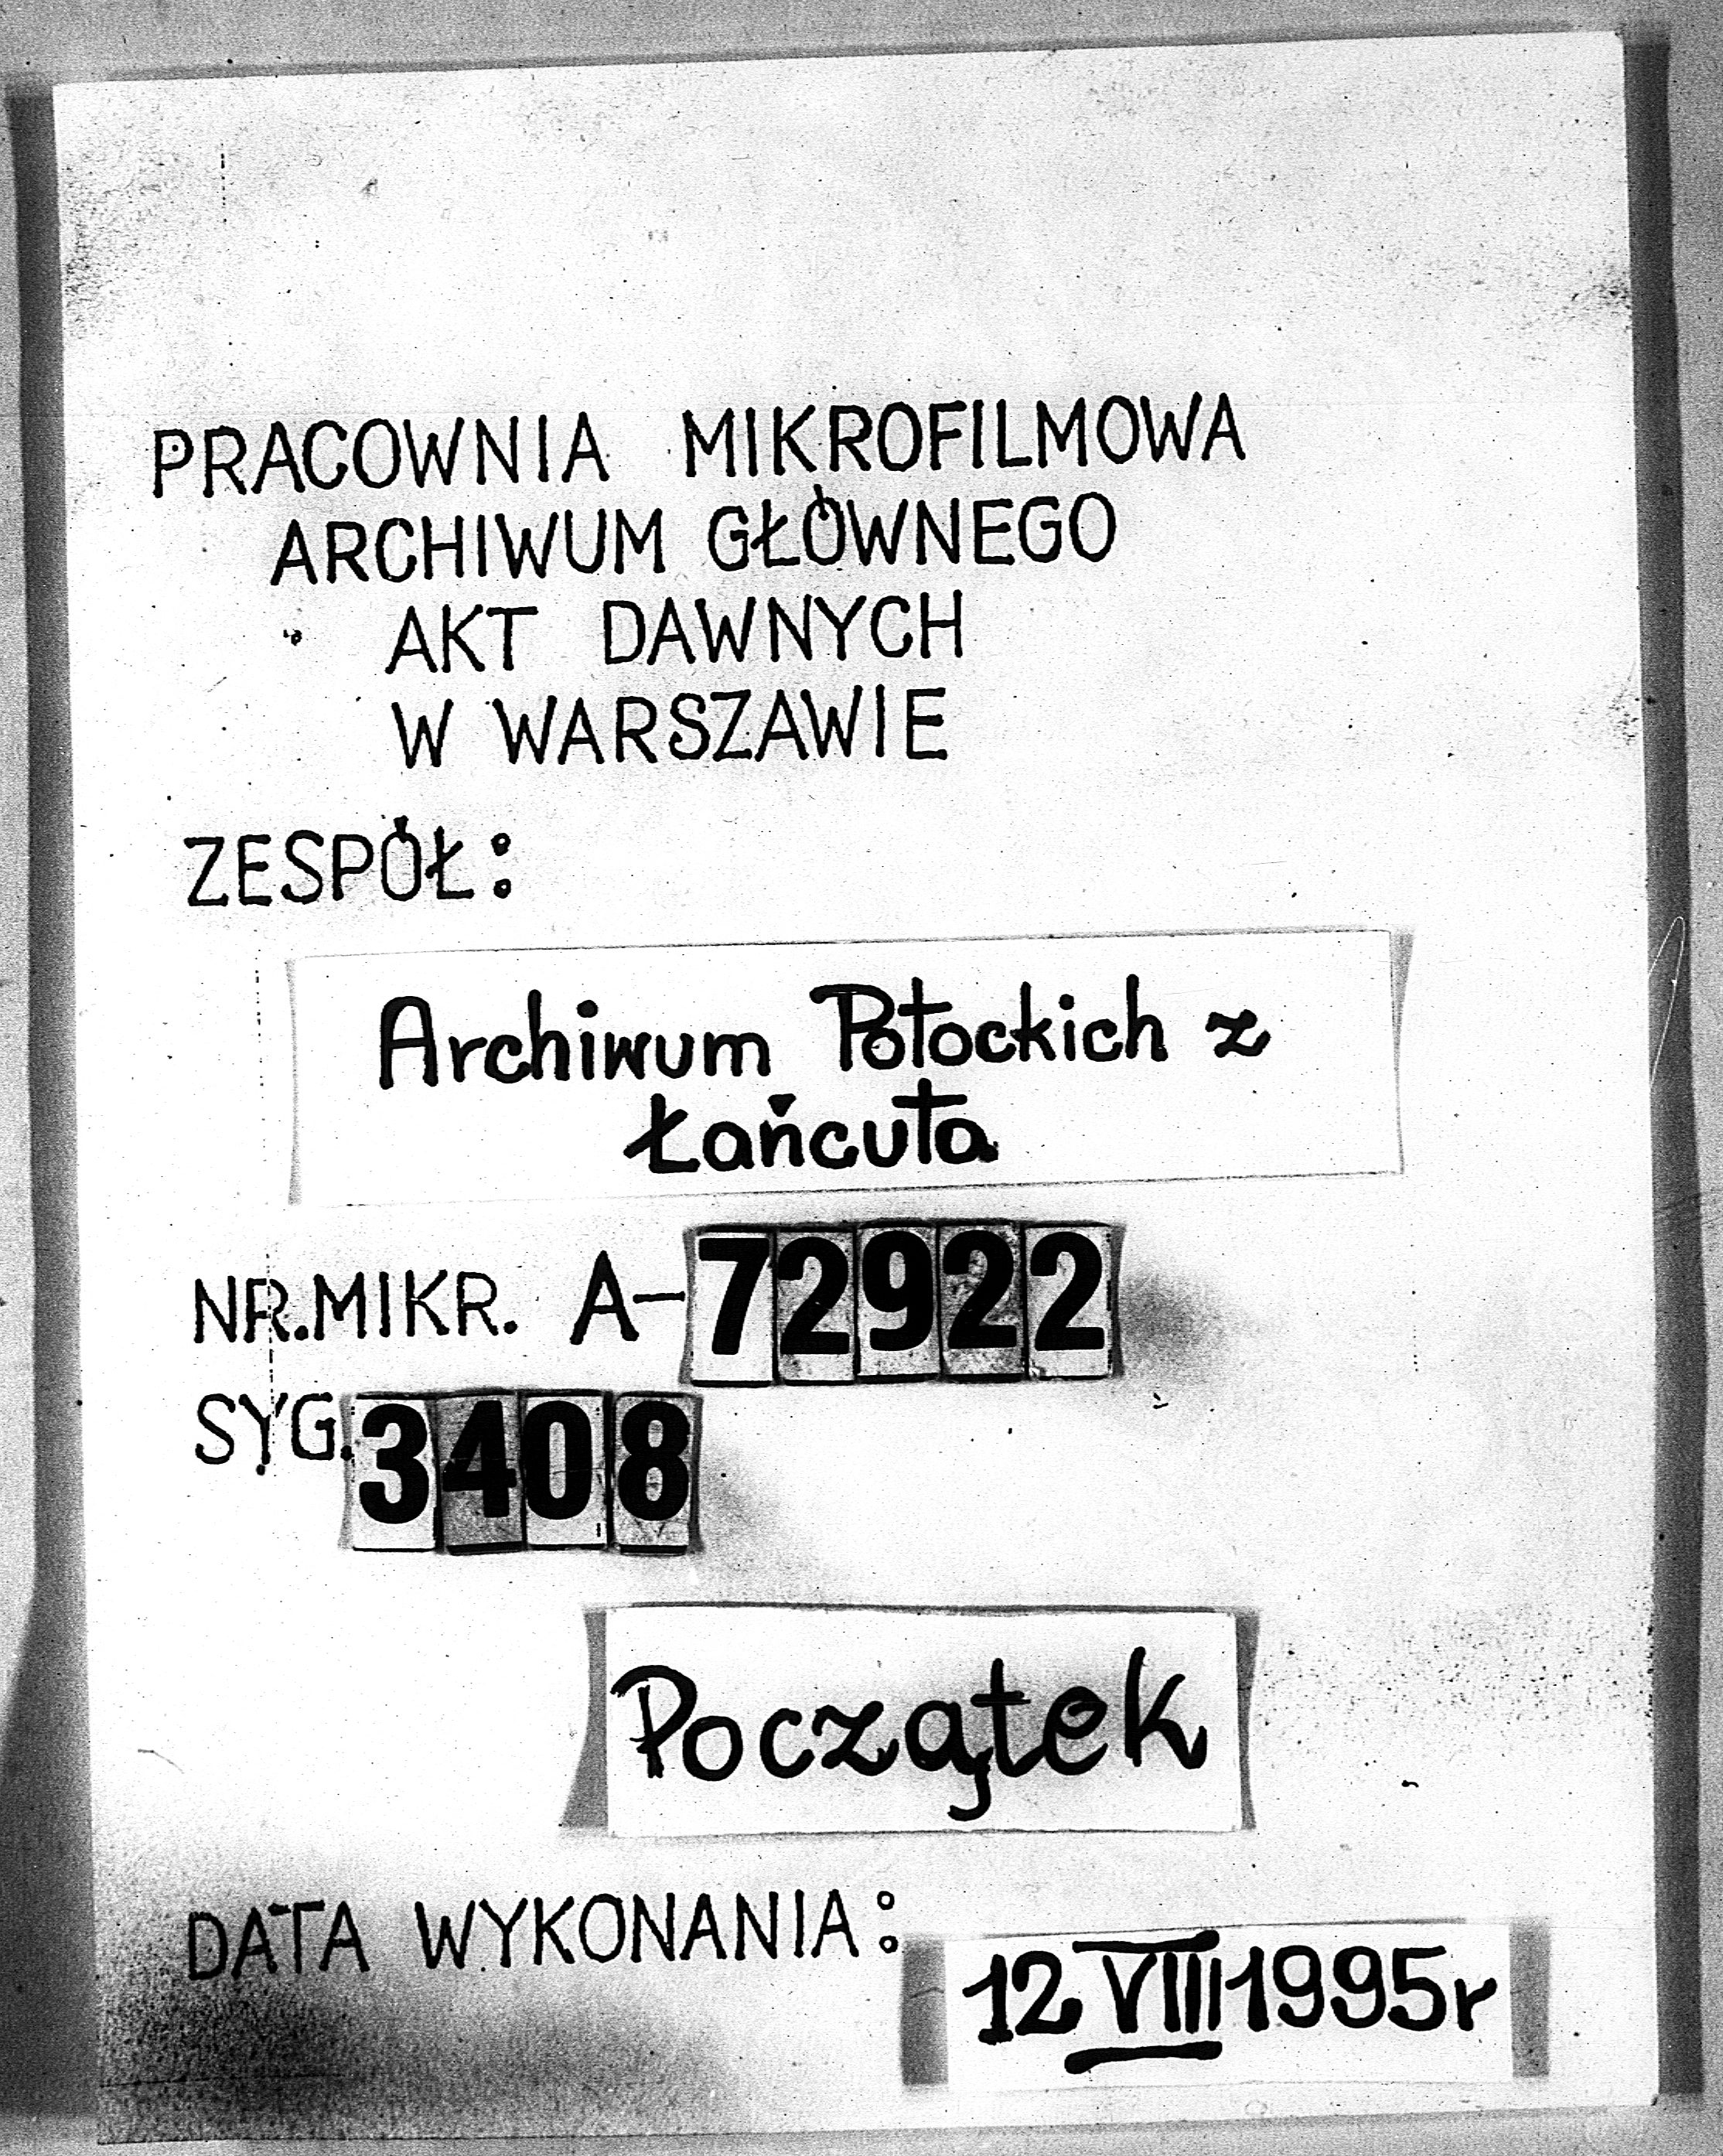 PRACOWNIA MIKROFILMOWA
ARCHIWUM GŁÓWNEGO
AKT DAWNYCH
W WARSZAWIE
ZESPÓŁ:
Archiwum Potockich z
Łańcuta
NR.MIKR. A-72922
SYG.3408
Początek
DATA WYKONANIA:
12 VIII 1995r